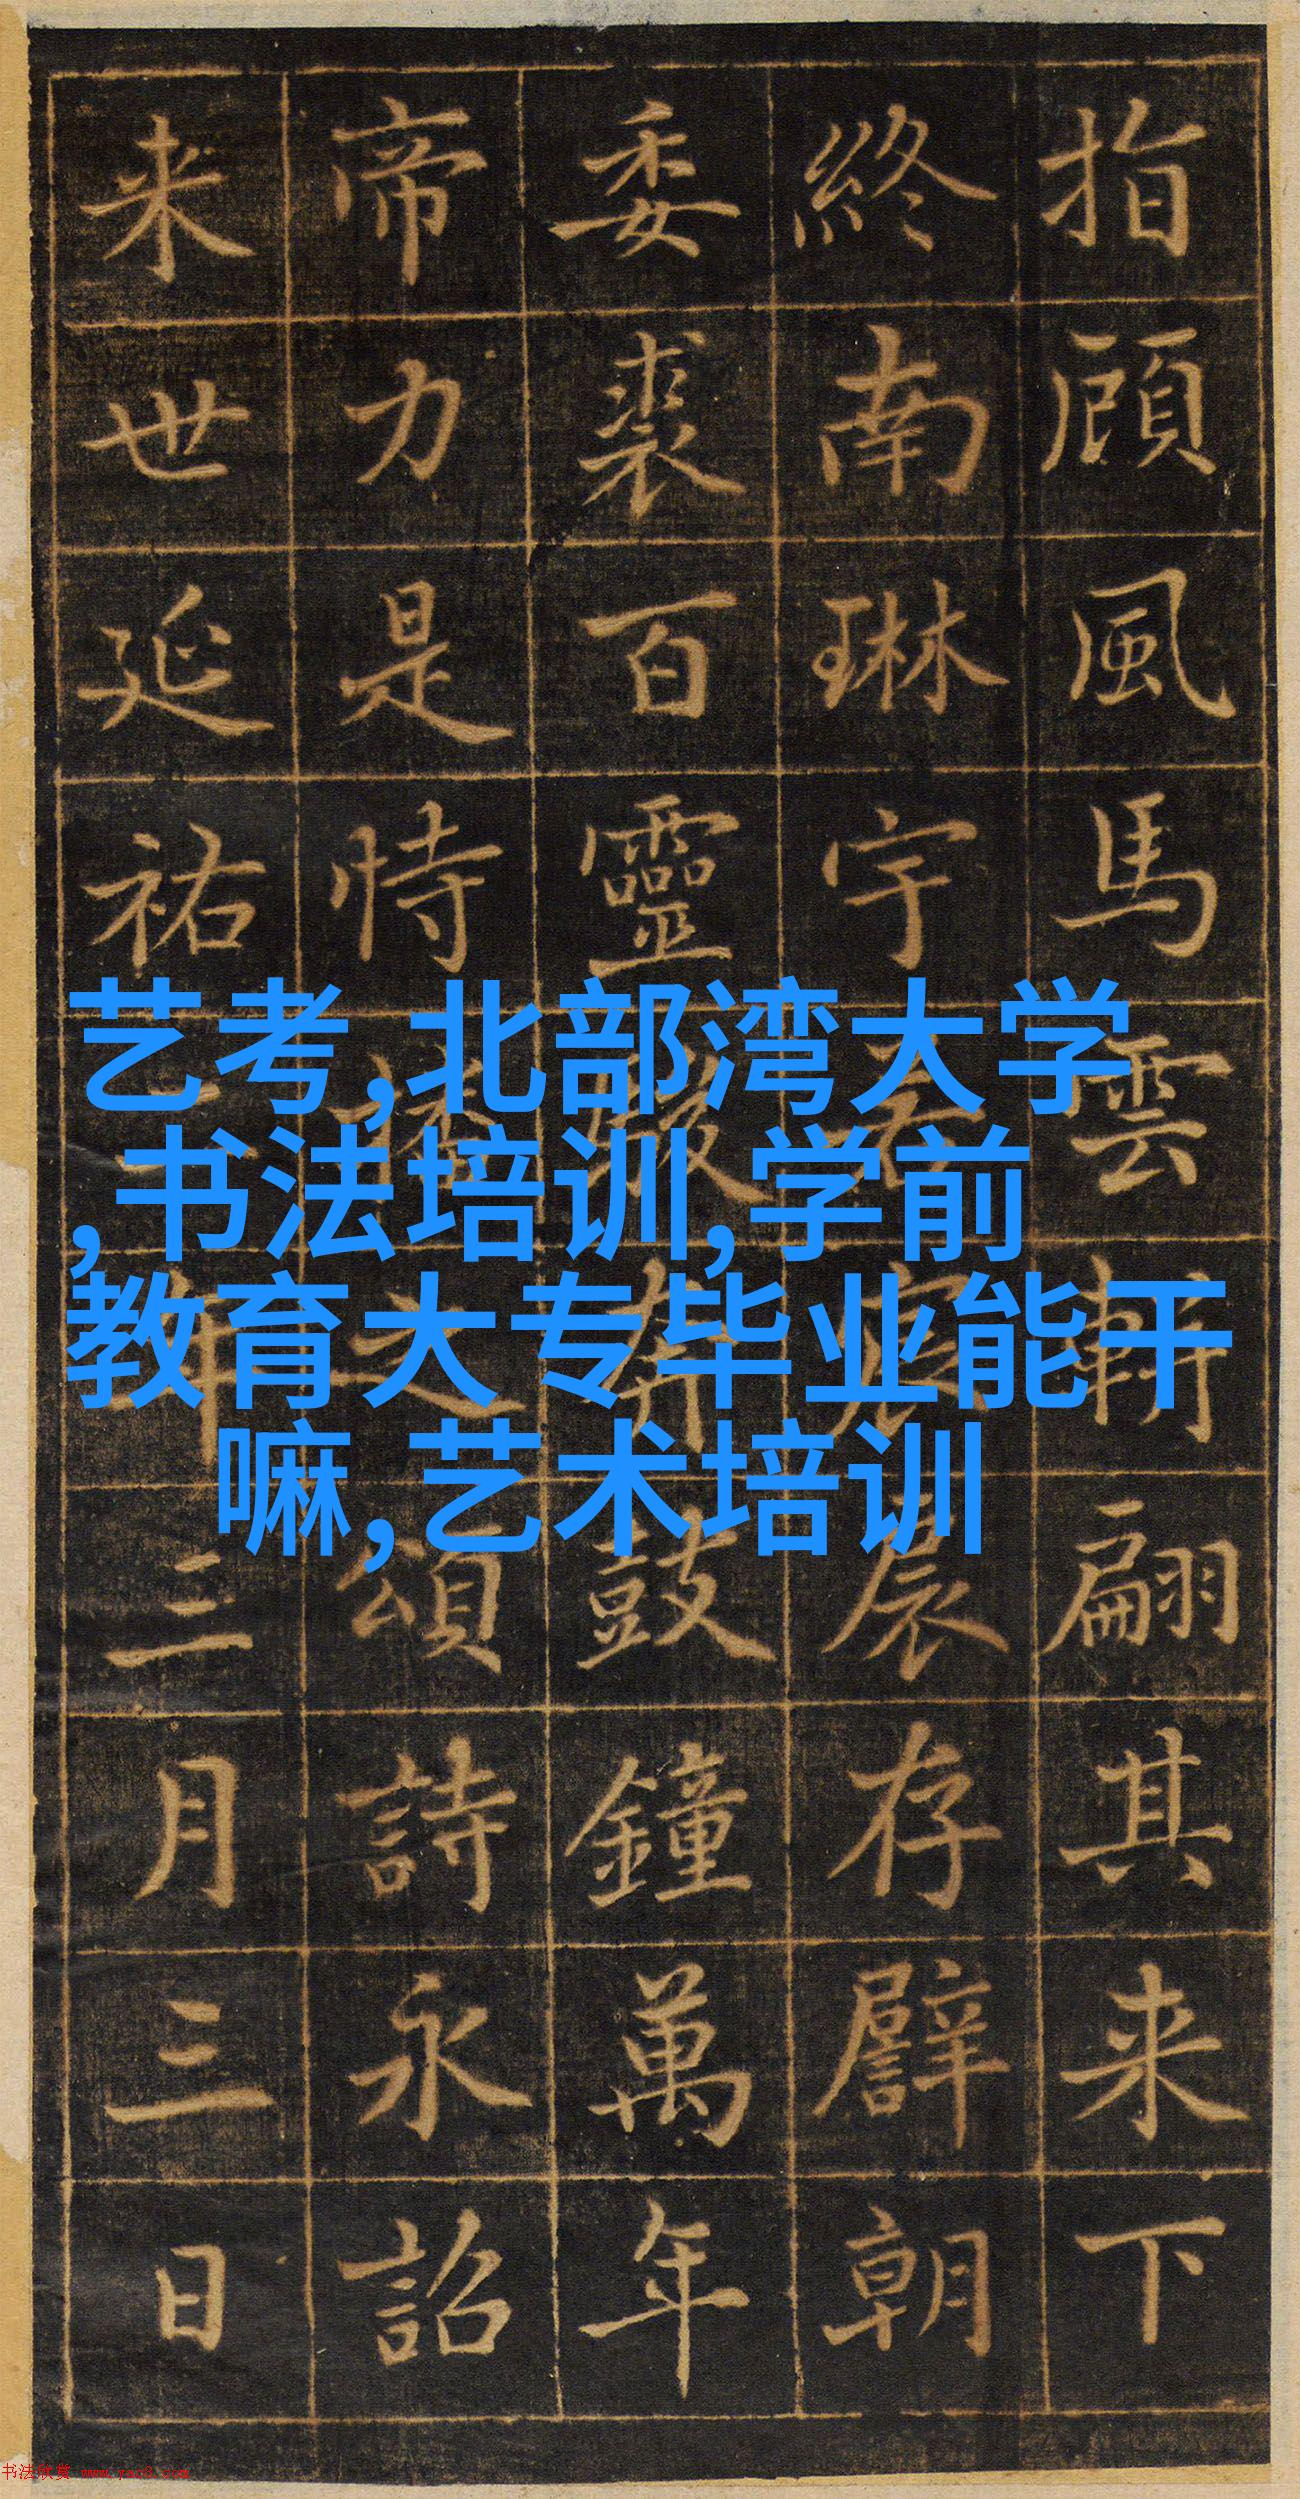 指顧風馬雲翩其来下
終南琳宇扆存譬朝
委裘百靈鼓鐘萬年
帝力是恃之頌詩永詔
来世延祐年三月三日
艺考,北部湾大学
,书法培训,学前
教育大专毕业能干
嘛,艺术培训
书法欣赏 www.yac8.com